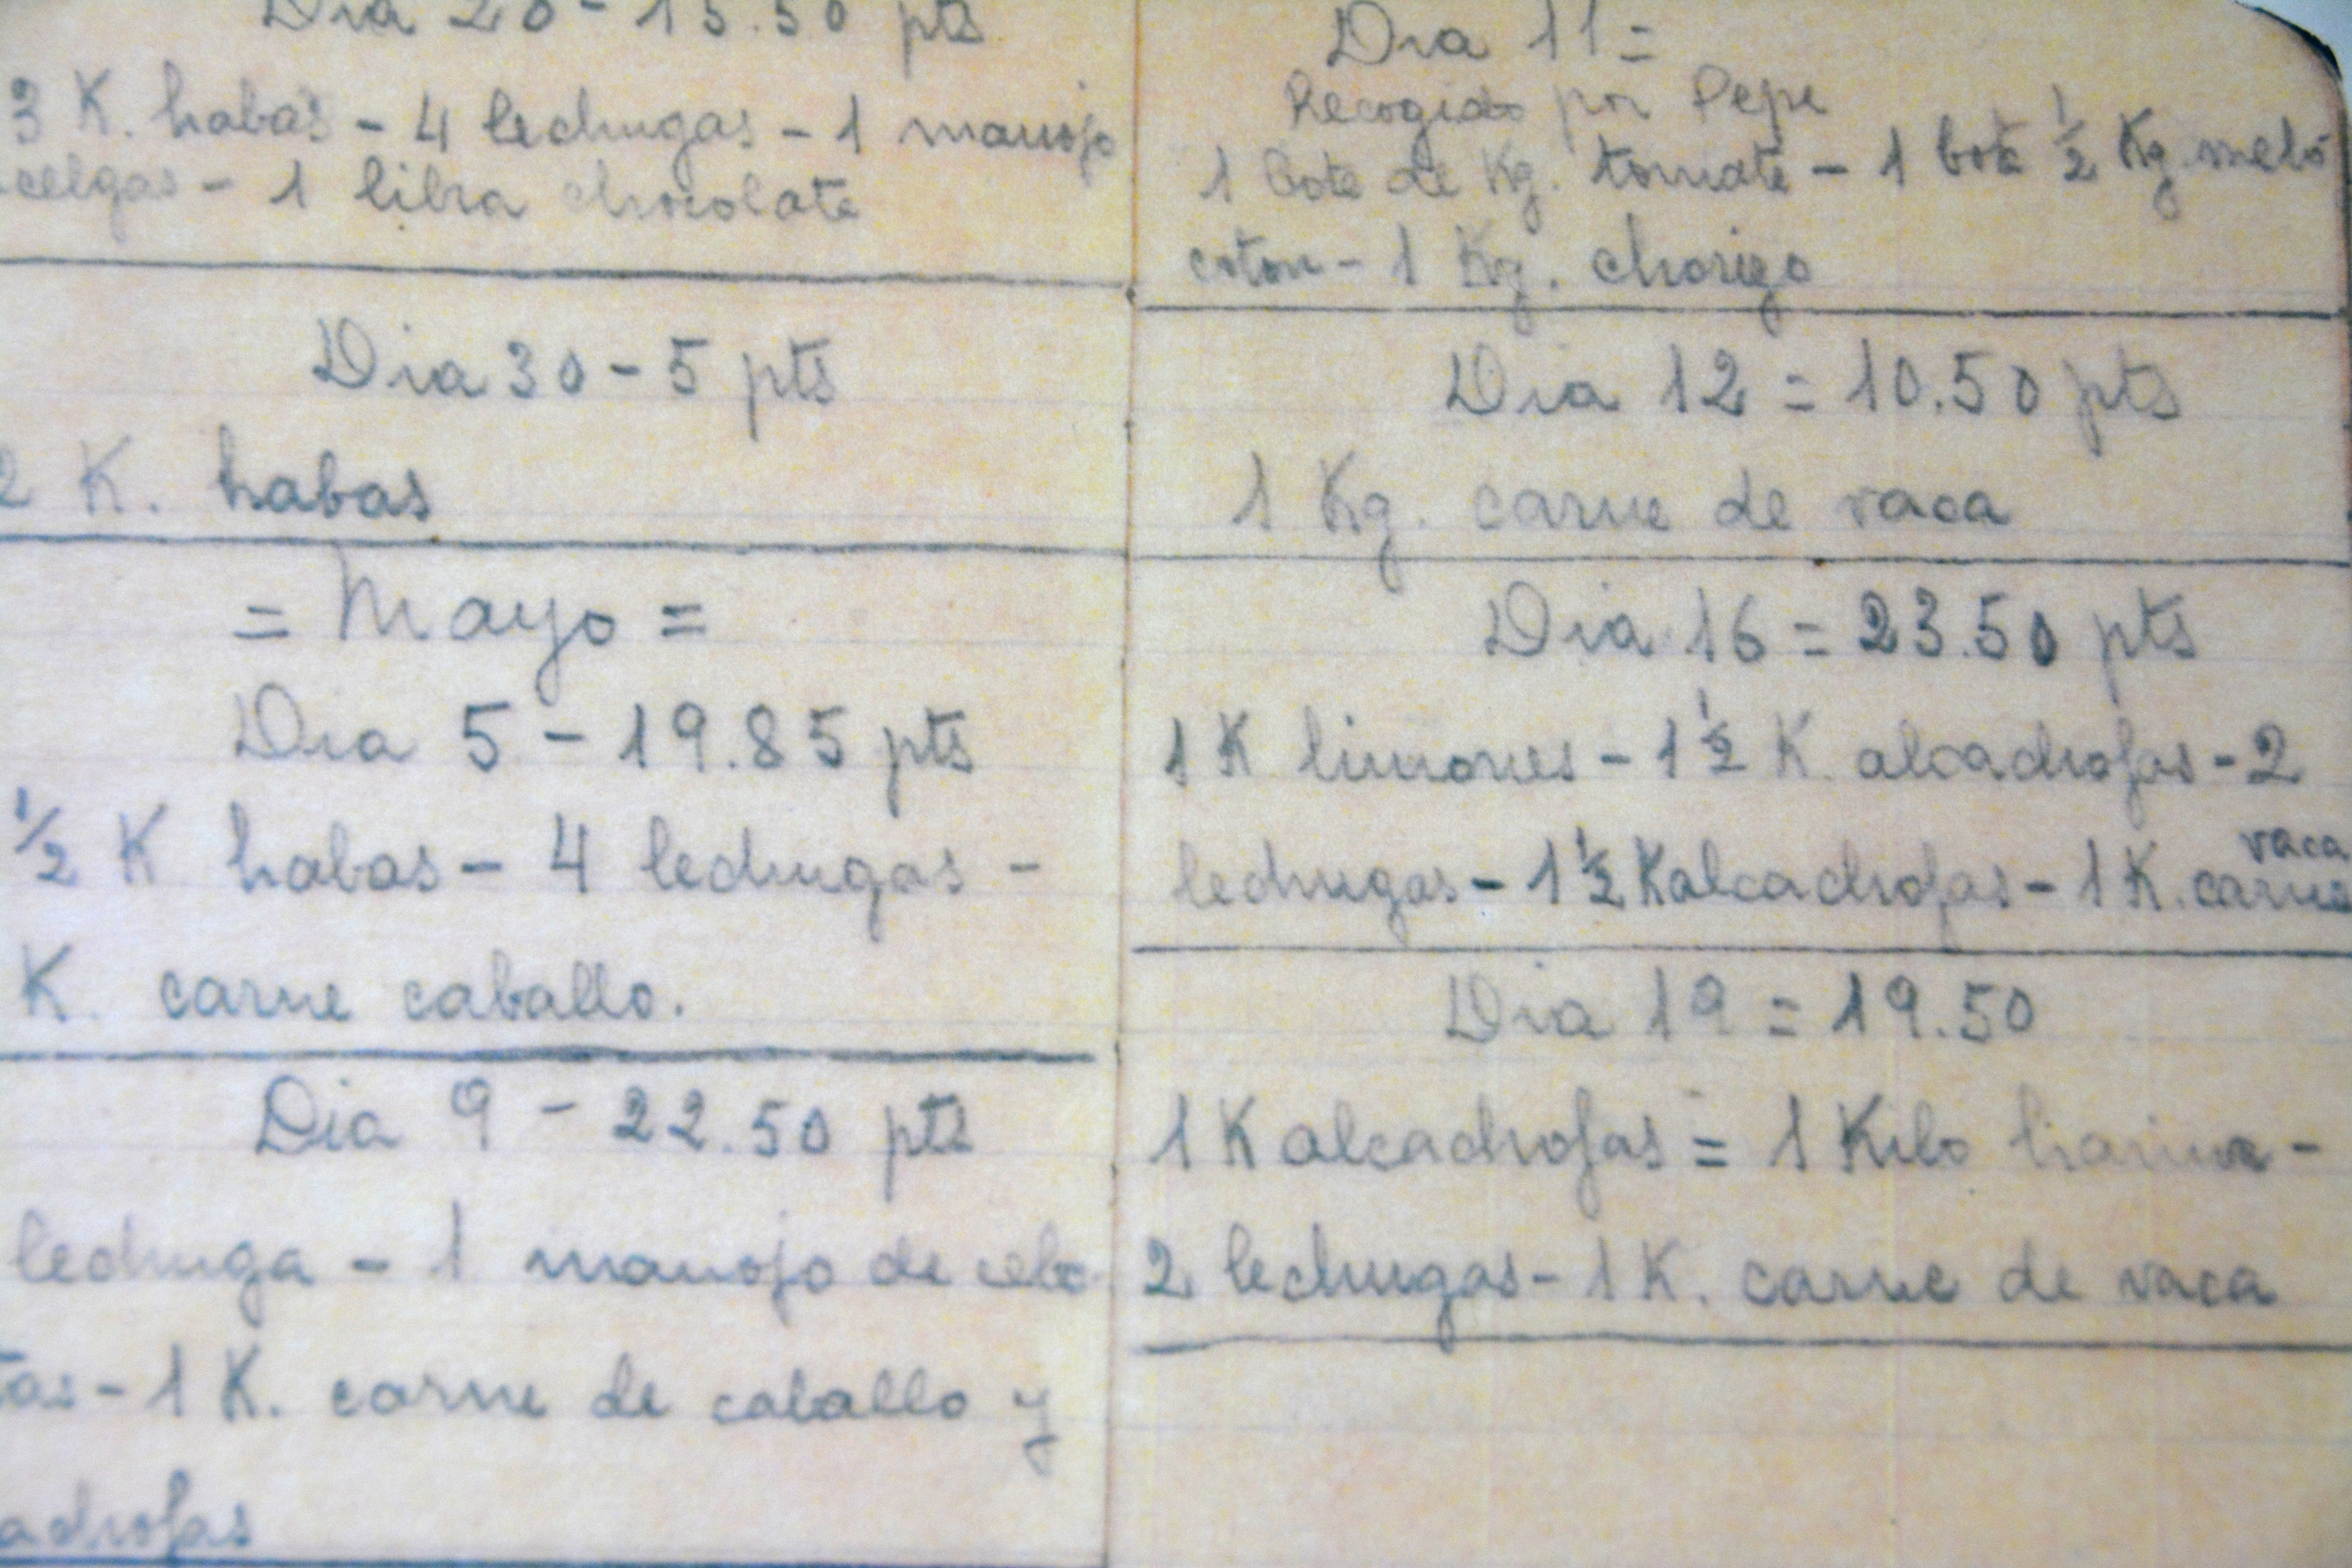 Dia 20 - 15.50 pts
3 K. habas - 4 lechugas - 1 manojo
celgas - 1 libra chocolate
Dia 30 - 5 pts
2 K. habas
= Mayo =
Dia 5 - 19.85 pts
1/2 K habas - 4 lechugas -
K. carne caballo.
Dia 9 - 22.50 pts
lechuga - 1 manojo de cebo
tas - 1 K. carne de caballo y
adrofas
Dia 11 =
Recogido por Pepe
1 bote de Kg. tomate - 1 bote 1/2 Kg. melo
coton - 1 Kg. chorizo
Dia 12 = 10.50 pts
1 Kg. carne de vaca
Dia 16 = 23.50 pts
1 K limones - 1 1/2 K. alcachofas - 2
vaca
lechugas - 1 1/2 K alcachofas - 1 K. carne
Dia 19 = 19.50
1 K alcachofas = 1 Kilo harina -
2 lechugas - 1 K. carne de vaca